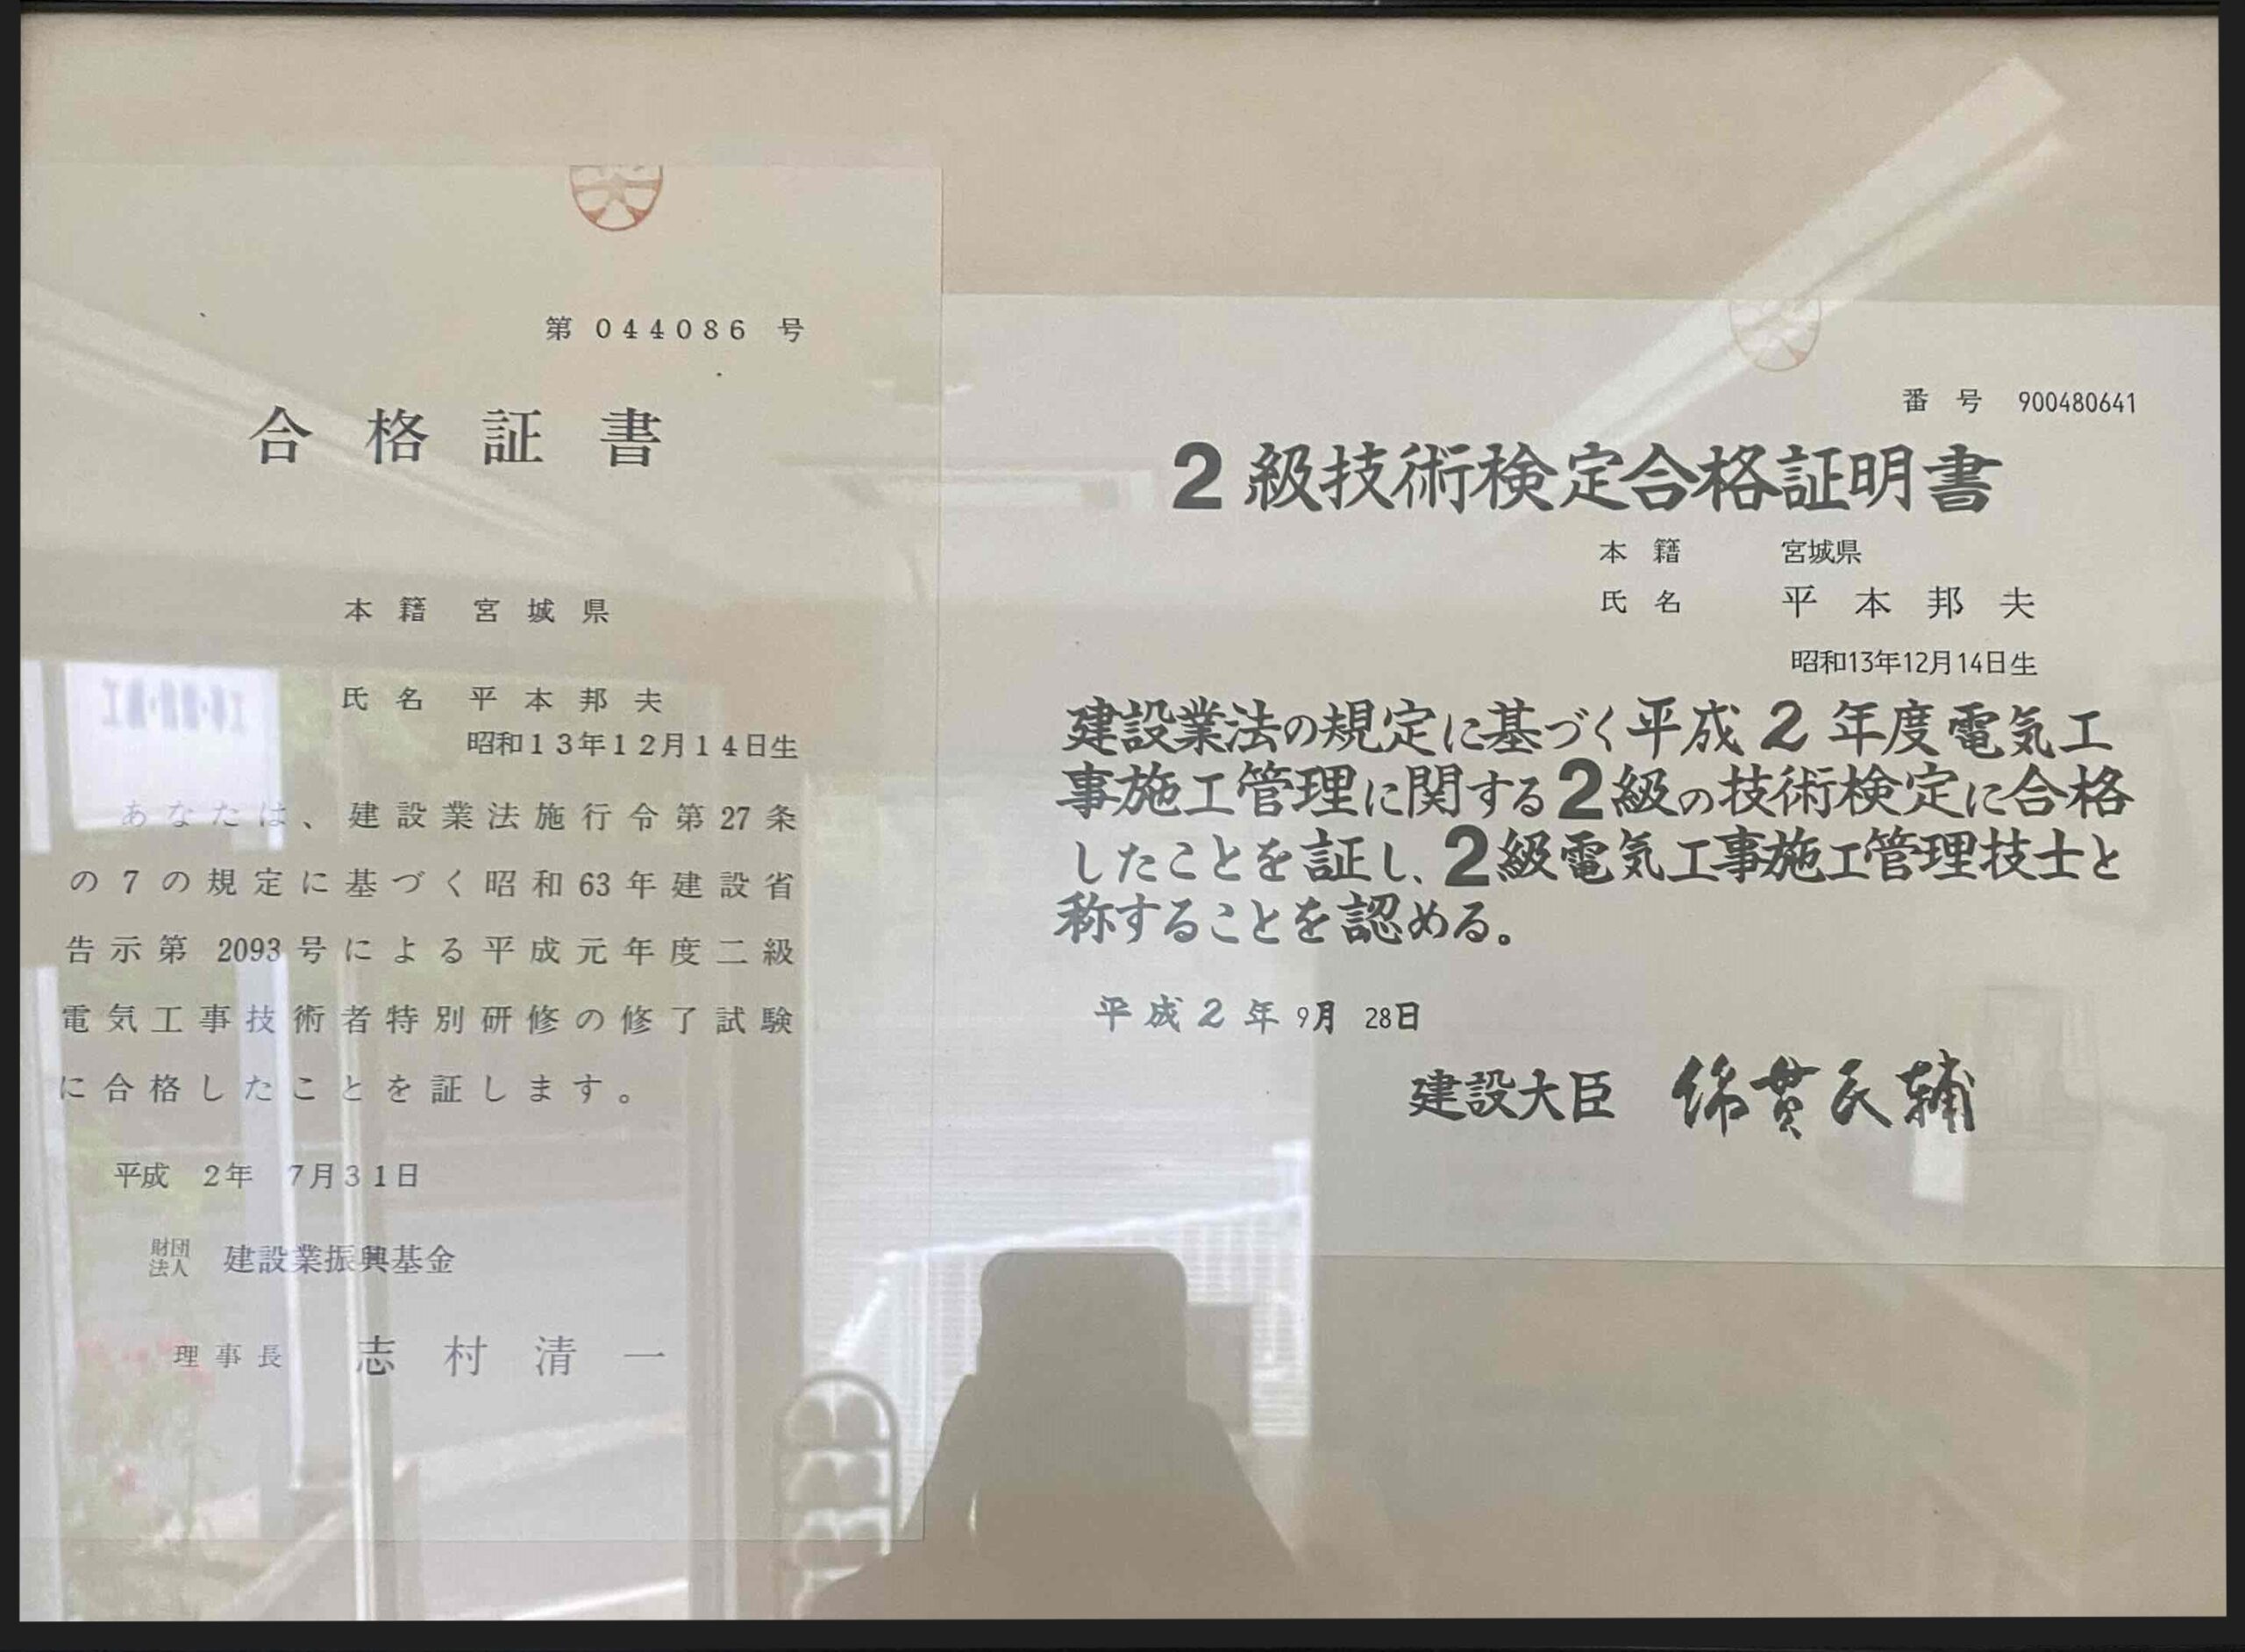 第 044086 号
合格証書
本籍 宮城県
氏名 平本邦夫
昭和13年12月14日生
あなたは、建設業法施行令第27条
の7の規定に基づく昭和63年建設省
告示第 2093 号による平成元年度二級
電気工事技術者特別研修の修了試験
に合格したことを証します。
平成 2年 7月31日
財団
法人 建設業振興基金
理事長 志村清一
番号 900480641
2級技術検定合格証明書
本籍 宮城県
氏名 平本邦夫
昭和13年12月14日生
建設業法の規定に基づく平成2年度電気工
事施工管理に関する2級の技術検定に合格
したことを証し、2級電気工事施工管理技士と
称することを認める。
平成2年 9月 28日
建設大臣 綿貫民輔